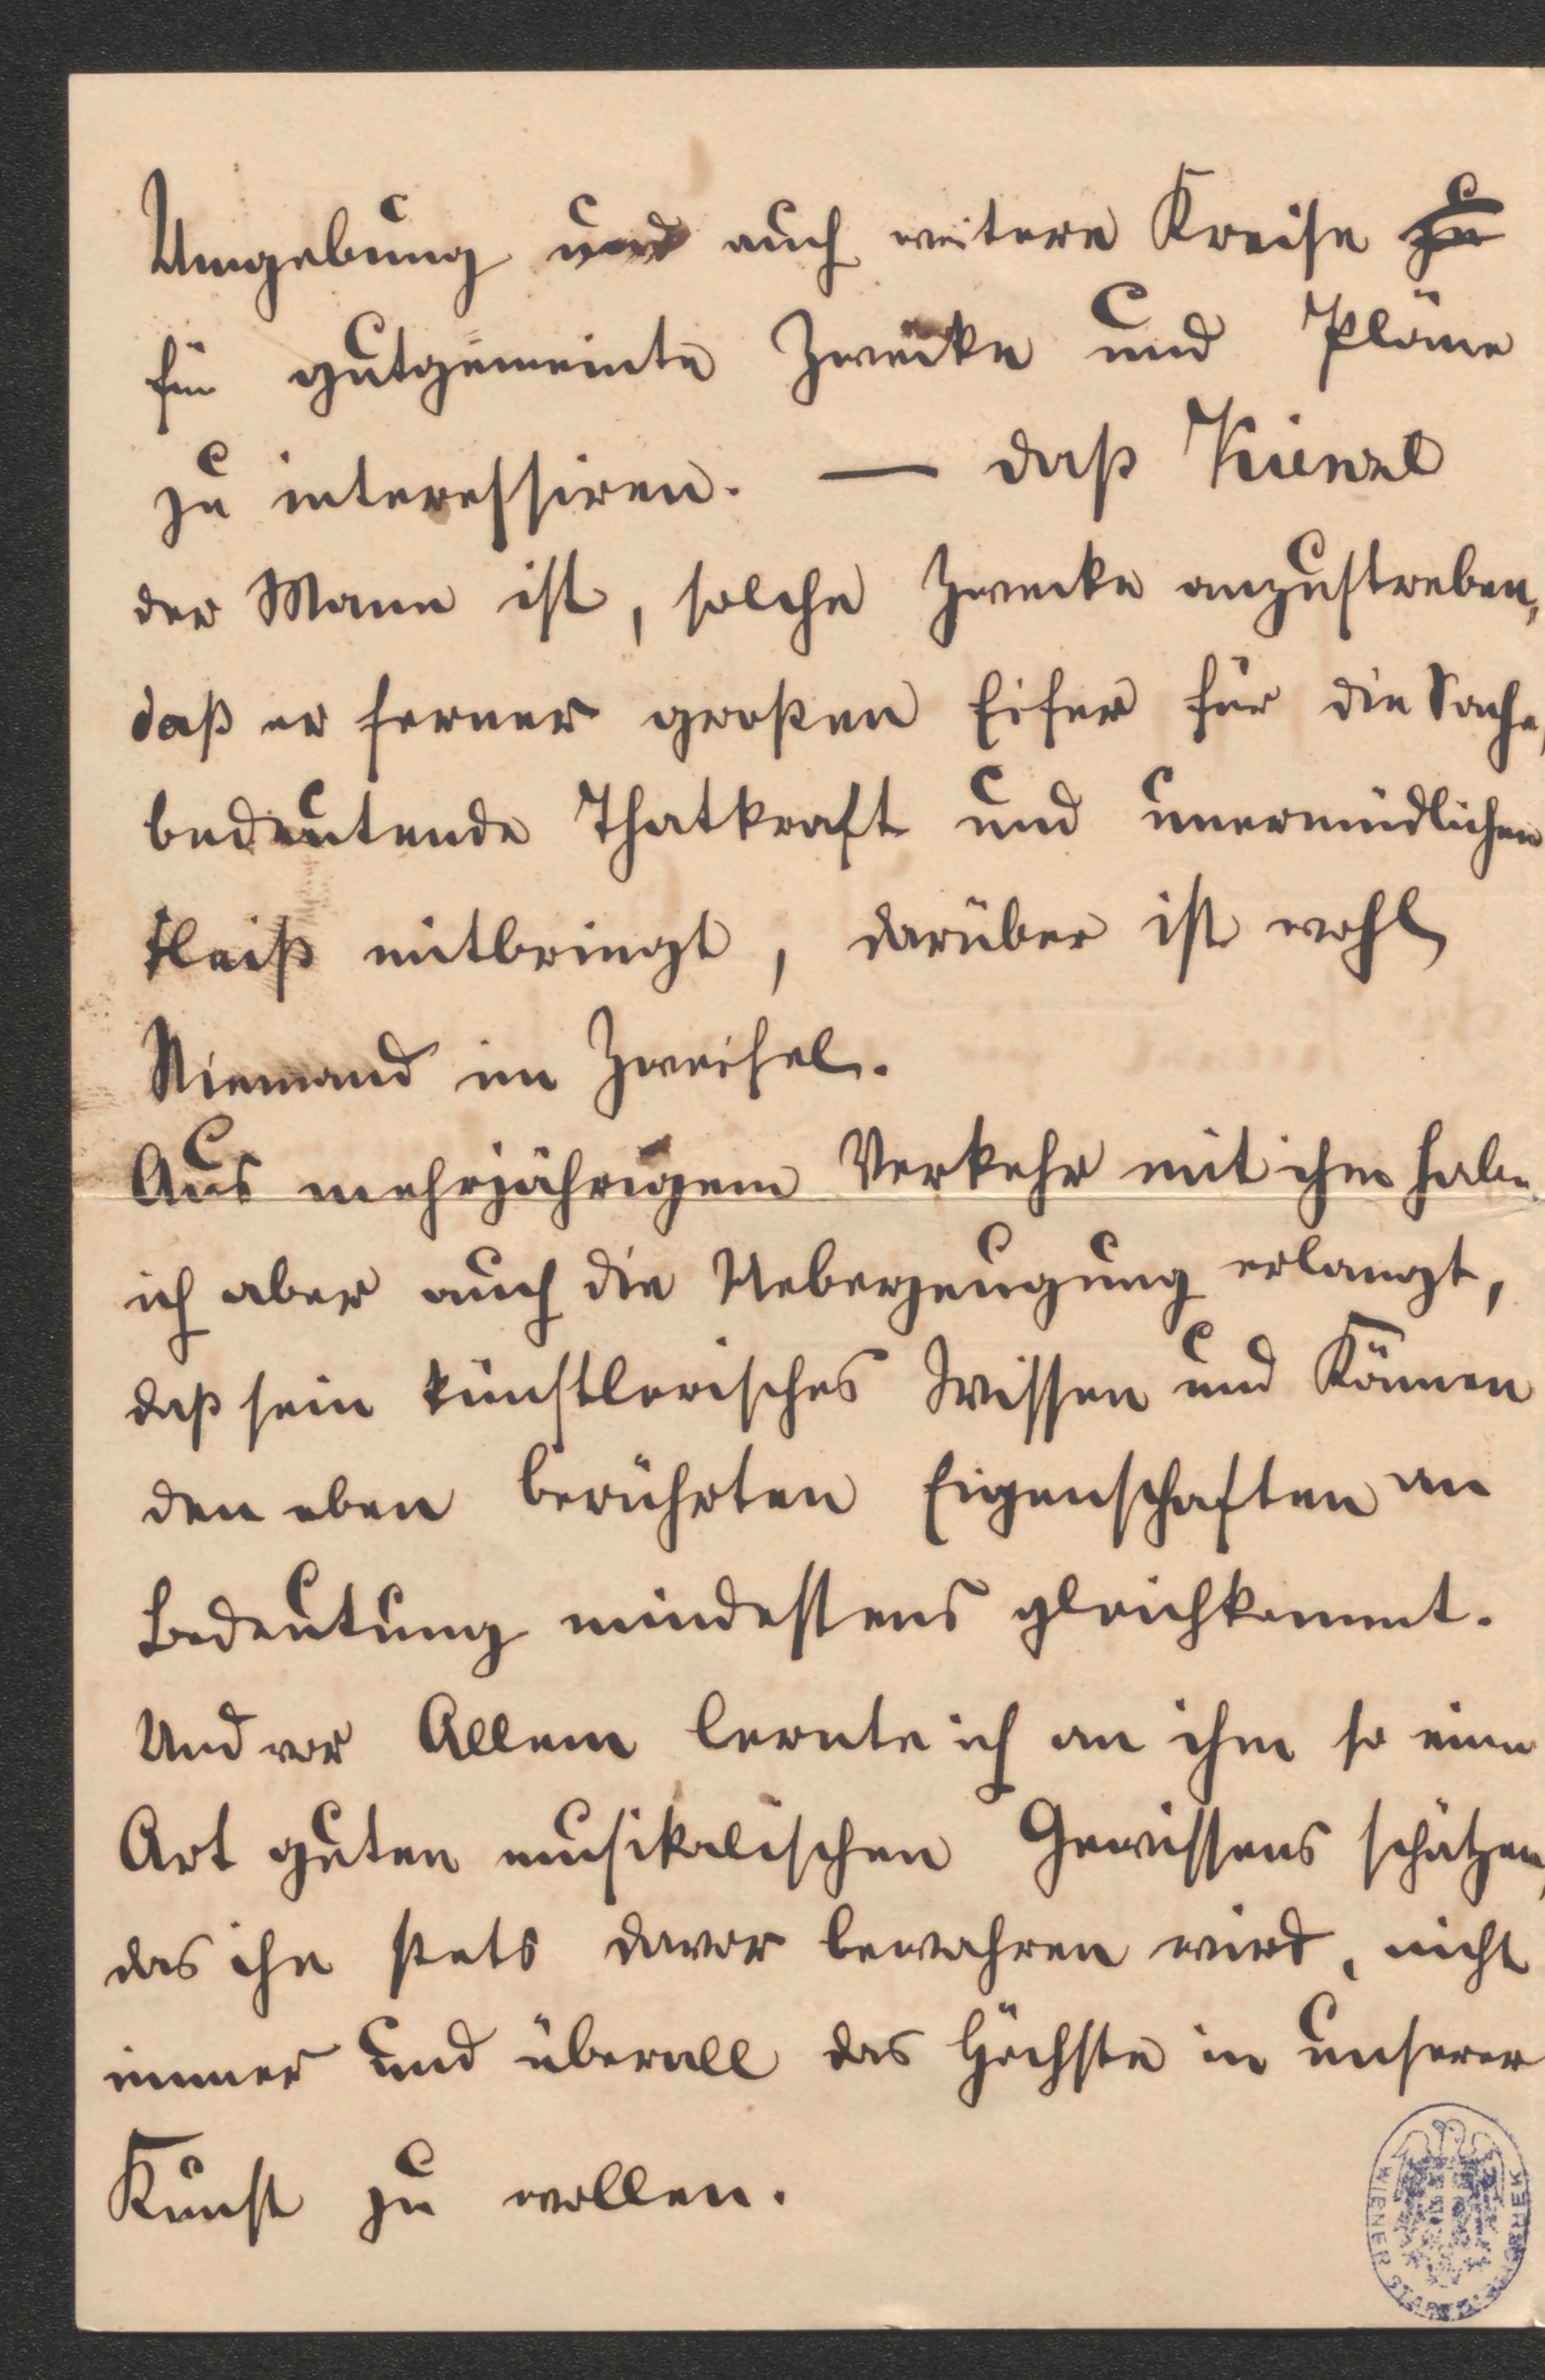 Umgebung und auch weitere Kreise zu
für gutgemeinte Zwecke und Pläne
zu interessiren. — daß Kienzl
der Mann ist, solche Zwecke anzustreben,
daß er ferner großen Eifer für die Sache,
bedeutende Thatkraft und unermüdlichen
Fleiß mitbringt, darüber ist wohl
Niemand im Zweifel.
Aus mehrjährigem Verkehr mit ihm habe
ich aber auch die Ueberzeugung erlangt,
daß sein künstlerisches Wissen und Können
den eben berührten Eigenschaften an
Bedeutung mindestens gleichkommt.
Und vor Allem lernte ich an ihm so eine
Art guten musikalischen Gewissens schätzen,
das ihn stets davor bewahren wird, nicht
immer und überall das Höchste in unserer
Kunst zu wollen.
WIENER STADTBIBLIOTHEK